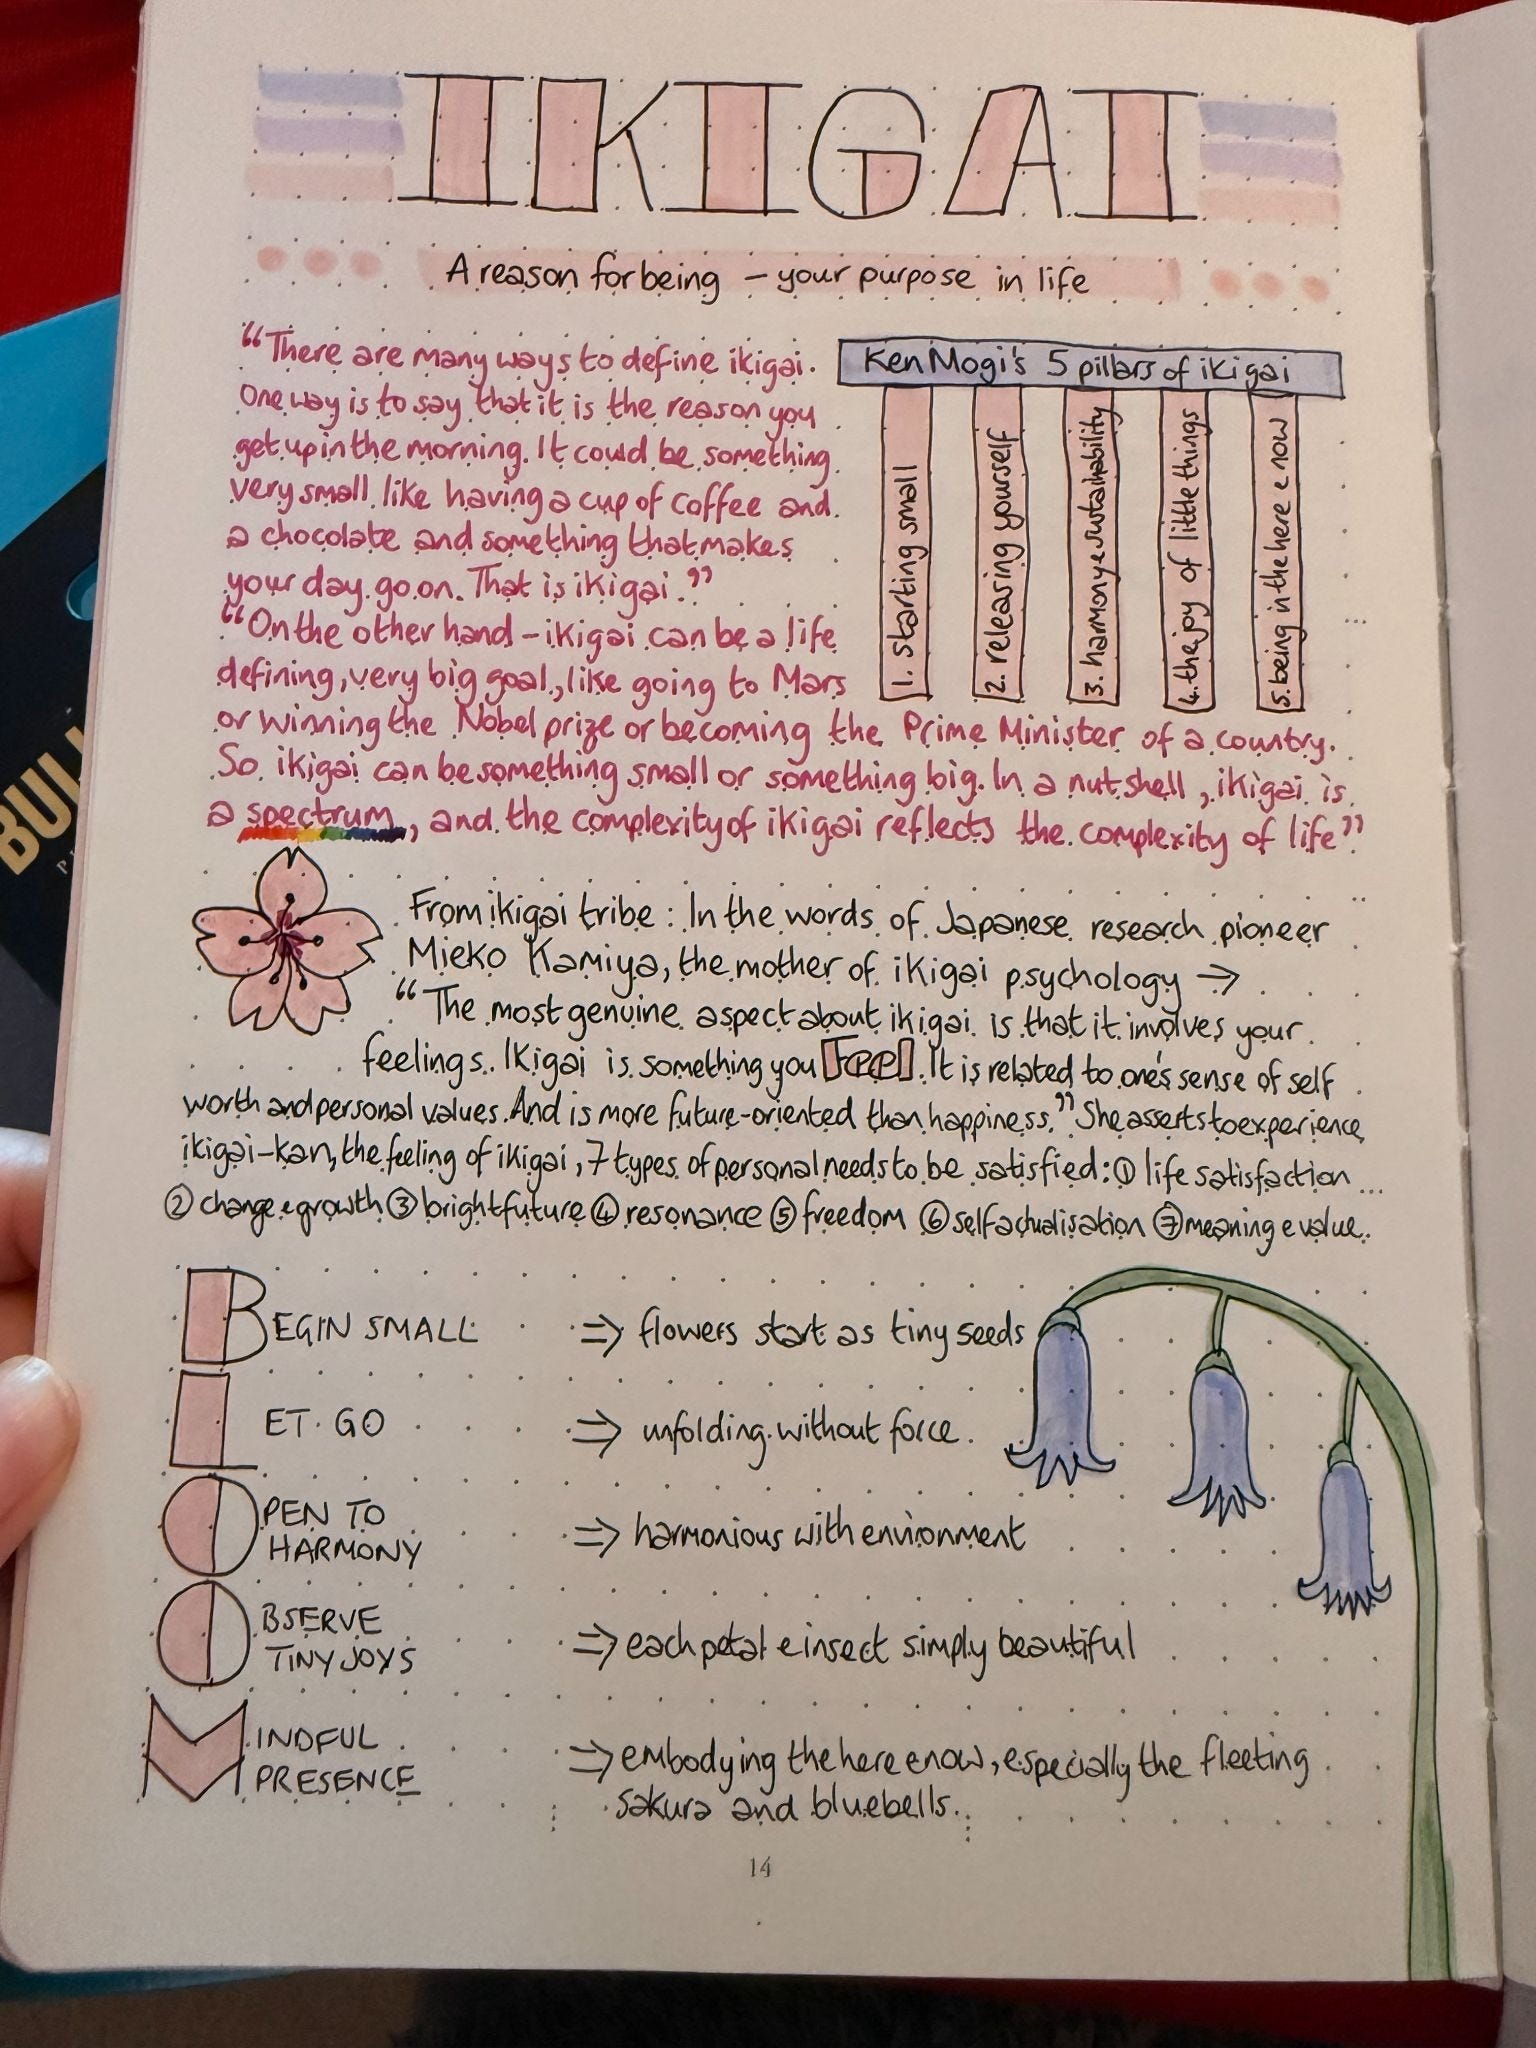 IKIGAI
A reason for being – your purpose in life
“There are many ways to define ikigai.
One way is to say that it is the reason you
get up in the morning. It could be something
very small like having a cup of coffee and
a chocolate and something that makes
your day go on. That is ikigai.”
“On the other hand – ikigai can be a life
defining, very big goal, like going to Mars
or winning the Nobel prize or becoming the Prime Minister of a country.
So ikigai can be something small or something big. In a nutshell, ikigai is
a spectrum, and the complexity of ikigai reflects the complexity of life”
Ken Mogi's 5 pillars of ikigai
1. starting small
2. releasing yourself
3. harmony e sustainability
4. the joy of little things
5. being in the here e now
From ikigai tribe: In the words of Japanese research pioneer
Mieko Kamiya, the mother of ikigai psychology →
“The most genuine aspect about ikigai is that it involves your
feelings. Ikigai is something you Feel. It is related to one's sense of self
worth and personal values. And is more future-oriented than happiness.” She asserts to experience
ikigai-kan, the feeling of ikigai, 7 types of personal needs to be satisfied: ① life satisfaction
② change e growth ③ bright future ④ resonance ⑤ freedom ⑥ self actualisation ⑦ meaning e value.
BEGIN SMALL ⇒ flowers start as tiny seeds
LET GO ⇒ unfolding without force.
OPEN TO
HARMONY ⇒ harmonious with environment
OBSERVE
TINY JOYS ⇒ each petal e insect simply beautiful
MINDFUL
PRESENCE ⇒ embodying the here e now, especially the fleeting
sakura and bluebells.
14